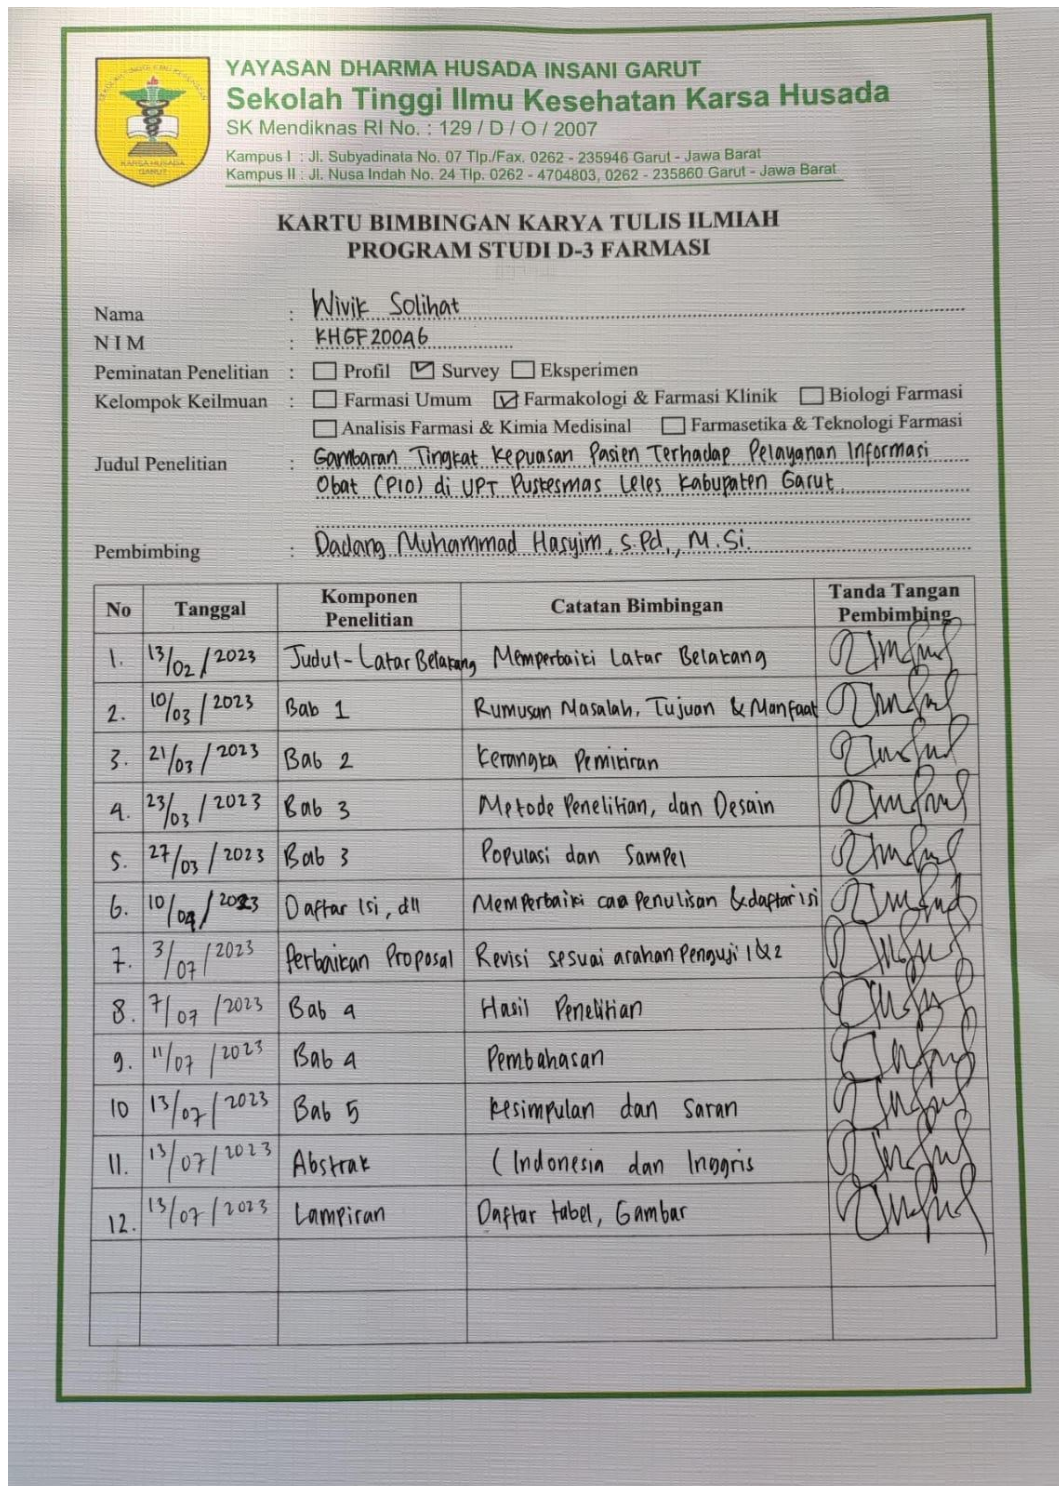 YAYASAN DHARMA HUSADA INSANI GARUT
Sekolah Tinggi Ilmu Kesehatan Karsa Husada
SK Mendiknas RI No. : 129 / D / O / 2007
Kampus I : Jl. Subyadinata No. 07 Tlp./Fax. 0262 - 235946 Garut - Jawa Barat
Kampus II : Jl. Nusa Indah No. 24 Tlp. 0262 - 4704803, 0262 - 235860 Garut - Jawa Barat
KARSA HUSADA
GARUT
KARTU BIMBINGAN KARYA TULIS ILMIAH
PROGRAM STUDI D-3 FARMASI
Nama : Wivik Solihat
NIM : KHGF20046
Peminatan Penelitian : Profil Survey Eksperimen
Kelompok Keilmuan : Farmasi Umum Farmakologi & Farmasi Klinik Biologi Farmasi
Analisis Farmasi & Kimia Medisinal Farmasetika & Teknologi Farmasi
Judul Penelitian : Gambaran Tingkat Kepuasan Pasien Terhadap Pelayanan Informasi
Obat (PIO) di UPT Puskesmas Leles Kabupaten Garut
Pembimbing : Dadang Muhammad Hasyim, S.Pd., M.Si.
No Tanggal Komponen Penelitian Catatan Bimbingan Tanda Tangan Pembimbing
1. 13/02/2023 Judul-Latar Belakang Memperbaiki Latar Belakang
2. 10/03/2023 Bab 1 Rumusan Masalah, Tujuan & Manfaat
3. 21/03/2023 Bab 2 Kerangka Pemikiran
4. 23/03/2023 Bab 3 Metode Penelitian, dan Desain
5. 27/03/2023 Bab 3 Populasi dan Sampel
6. 10/04/2023 Daftar Isi, dll Memperbaiki cara Penulisan & daftar isi
7. 3/07/2023 Perbaikan Proposal Revisi sesuai arahan Penguji 1 & 2
8. 7/07/2023 Bab 4 Hasil Penelitian
9. 11/07/2023 Bab 4 Pembahasan
10 13/07/2023 Bab 5 Kesimpulan dan Saran
11. 13/07/2023 Abstrak (Indonesia dan Inggris
12. 13/07/2023 Lampiran Daftar tabel, Gambar